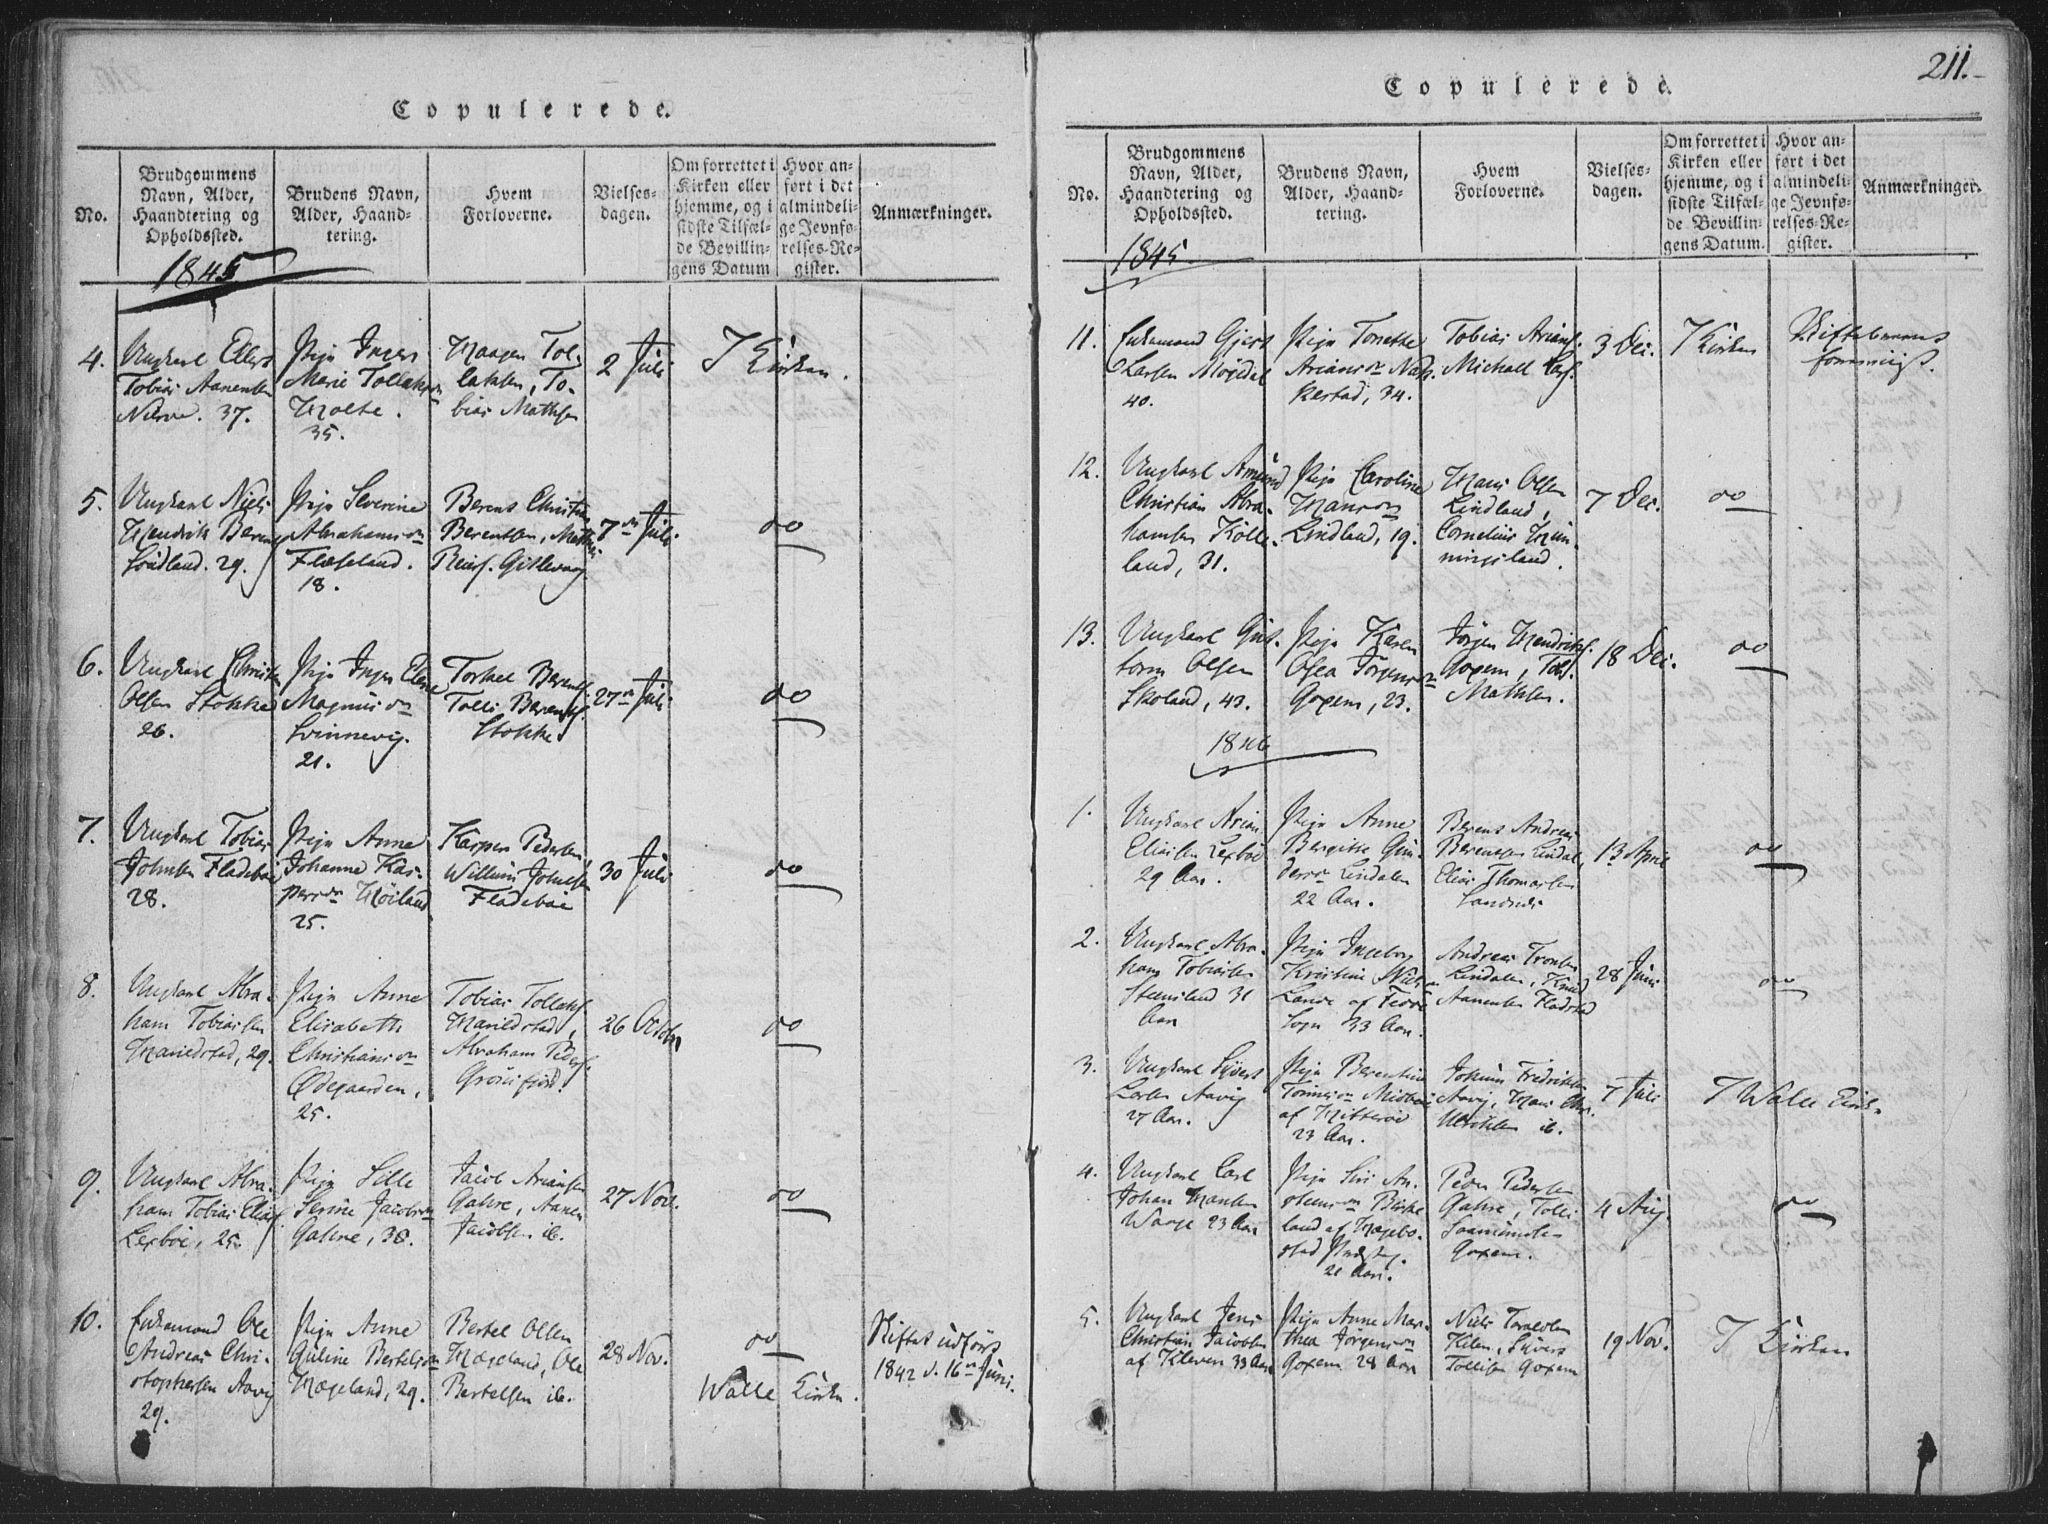 211.
Copulerede.
No.
Brudgommens
Navn, Alder,
Haandtering og
Opholdssted.
Brudens Navn,
Alder, Haand-
tering.
Hvem
Forloverne.
Vielses-
dagen.
Om forrettet i
Kirken eller
hjemme, og i
sidste Tilfæl-
de Bevillin-
gens Datum
Hvor an-
ført i det
almindeli-
ge Jevnfø-
relses-Re-
gister.
Anmærkninger.
1845
4.
Ungkarl Ellers
Tobias Aanensen
37.
Pige Inger
Marie Tollaks
Holte.
35.
Haagen Tol-
laksen, To-
bias Mathsen
2 Juli
I Kirken.
5.
Ungkarl Niels
Hendrik Berens
29.
Pige Severine
Abrahams
Flæseland.
18.
Berens Christian
Berentsen,
Reiers. Gitlevaag
7 Juli
do
6.
Ungkarl Christen
Olsen Stokke
26.
Pige Inger Elene
Magnus
Svinnevig.
21.
Torkel Berents.
Tolli Berents.
Stokke
27 Juli
do
7.
Ungkarl Tobias
Johnsen Fladebøe
28.
Pige Anne
Johanne Kas-
per Høiland
25.
Kasper Pedersen,
Willum Johnsen
Fladebøe
30 Juli
do
8.
Ungkarl Abra-
ham Tobiassen
Harledstad, 29.
Pige Anne
Elisabeth
Christians
Ødegaarden,
25.
Tobias Tollaks.
Harledstad,
Abraham Peders.
26 Octobr
do
9.
Ungkarl Abra-
ham Tobias Elias.
Lexbøe, 25.
Pige Sille
Serine Jacobs
Gahre, 38.
Jacob Ariansen
Gahre, Aanen
Jacobsen ib.
27 Nov.
do
10.
Enkemand Ole
Andreas Chri-
stophersen Aavig
29.
Pige Anne
Guline Bertels
Hægeland, 29.
Bertel Olsen
Hægeland, Ole
Bertelsen ib.
28 Nov.
do
Walle Kirke.
Skiftet udførs
1842 d. 16 Juni.
Copulerede.
No.
Brudgommens
Navn, Alder,
Haandtering og
Opholdssted.
Brudens Navn,
Alder, Haand-
tering.
Hvem
Forloverne.
Vielses-
dagen.
Om forrettet i
Kirken eller
hjemme, og i
sidste Tilfæl-
de Bevillin-
gens Datum.
Hvor an-
ført i det
almindeli-
ge Jevnfø-
relses-Re-
gister.
Anmærkninger.
1845.
11.
Enkemand Gjert
Larsen Møgdal
40.
Pige Tonette
Arians
kestad, 34.
Tobias Arians.
Michael Lars.
3 Dec.
I Kirken
12.
Ungkarl Amund
Christian Abra-
hamsen Kølle-
land, 31.
Pige Caroline
Hans
Lindland, 19.
Hans Olsen
Lindland,
Cornelius Hun-
ningsland.
7 Dec.
do
13.
Ungkarl Gut-
torm Olsen
Skoland, 43.
Pige Karen
Olea Jørgens
Goxem, 23.
Jørgen Hendriks.
Goxem, Tob.
Mathsen.
18 Dec.
do
1846
1.
Ungkarl Arian
Eliassen Lexbøe
29 Aar.
Pige Anne
Bergitte Gun-
ders Lindalen
22 Aar.
Berent Andreas
Berentsen Lindal
Elias Thomassen
13 April
do
2.
Ungkarl Abra-
ham Tobiassen
Steensland 31
Aar
Pige Ingeborg
Kristine Niels
Lande af Fedde
Sogn 33 Aar.
Andreas Tronsen
Lindalen, Knud
Aanensen Fladstad
28 Juni
do
3.
Ungkarl Syvert
Larsen Aavig
27 Aar.
Pige Berentine
Tønnes Midbøe
af Hitterøe
23 Aar.
Jokum Fredriksen
Aavig, Hans Chr.
ib.
7 Juli
I Walle Kirke
4.
Ungkarl Carl
Johan Hansen
Waage 23 Aar
Pige Siri An-
stens Birke
land af Hægebo-
stad Præstg.
21 Aar.
Peder Pedersen
Gahre, Tolli
Goxem.
4 Aug.
do
5.
Ungkarl Jens
Christian Jacobsen
af Kleven 33 Aar
Pige Anne Mar-
thea Jørgens
Goxem 28 Aar
Niels Taraldsen
Kilen, Syvert
Tollisen Goxem
19 Nov.
I Kirken